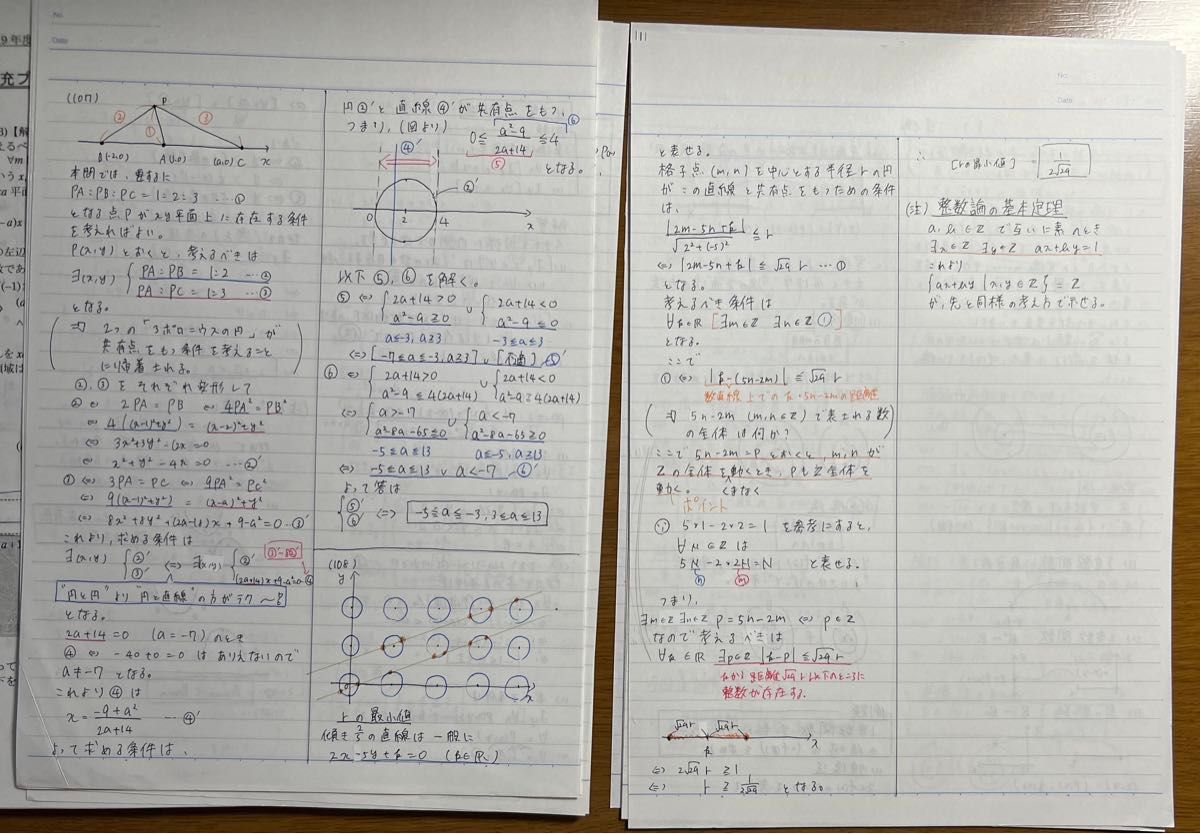 (107)
P
② ① ③
B(-2,0) A(1,0) (a,0) C x
本問では、要するに
PA:PB:PC=1:2:3 …①
となる点Pがxy平面上に存在する条件
を考えればよい。
P(x,y)とおくと、考えるべきは
∃(x,y) { PA:PB=1:2 …②
PA:PC=1:3 …③
となる。
2つの「アポロニウスの円」が
共有点をもつ条件を考えること
に帰着される。
②,③をそれぞれ変形して
② ⇔ 2PA=PB ⇔ 4PA²=PB²
⇔ 4{(x-1)²+y²}=(x+2)²+y²
⇔ 3x²+3y²-12x=0
⇔ x²+y²-4x=0 …②'
③ ⇔ 3PA=PC ⇔ 9PA²=PC²
⇔ 9{(x-1)²+y²}=(x-a)²+y²
⇔ 8x²+8y²+(2a-18)x+9-a²=0 …③'
これより、求める条件は
③'-8②'
∃(x,y) { ②' ③' ⇔ ∃(x,y) { ②'
(2a+14)x+9-a²=0 …④
"円と円"より"円と直線"の方がラク〜!
となる。
2a+14=0 (a=-7)のとき
④ ⇔ -40+0=0 はありえないので
a≠-7 となる。
これより④は
x=(-9+a²)/(2a+14) …④'
よって求める条件は、
円②'と直線④'が共有点をもつ、
つまり、(図より) 0≦(a²-9)/(2a+14)≦4
⑤ ⑥
となる。
④'
②'
0 2 4 x
以下⑤,⑥を解く。
⑤ ⇔ { 2a+14>0 ∪ { 2a+14<0
a²-9≧0 a²-9≦0
a≦-3, a≧3 -3≦a≦3
⇔ [-7<a≦-3, a≧3] ∪ [不適] …⑤'
⑥ ⇔ { 2a+14>0 ∪ { 2a+14<0
a²-9≦4(2a+14) a²-9≧4(2a+14)
⇔ { a>-7 ∪ { a<-7
a²-8a-65≦0 a²-8a-65≧0
-5≦a≦13 a≦-5, a≧13
⇔ -5≦a≦13 ∪ a<-7 …⑥'
よって答は
{ ⑤' ⑥' ⇔ -5≦a≦-3, 3≦a≦13
(108)
y
0 x
rの最小値
傾き2/5の直線は一般に
2x-5y+k=0 (k∈R)
111
と表せる。
格子点(m,n)を中心とする半径rの円
がこの直線と共有点をもつための条件
は、
|2m-5n+k|/√(2²+(-5)²)≦r
⇔ |2m-5n+k|≦√29 r …①
となる。
考えるべき条件は
∀k∈R [∃m∈Z ∃n∈Z ①]
となる。
ここで
① ⇔ |k-(5n-2m)|≦√29 r
数直線上でのk・5n-2mの距離
5n-2m (m,n∈Z)で表される数
の全体は何か?
ここで5n-2m=Pとおくと、m,nが
Zの全体を動くとき、PもZ全体を
くまなく
動く。
ポイント
∵) 5×1-2×2=1 を参考にすると、
∀N∈Z は
5N-2×2N=N と表せる。
n m
つまり、
∃m∈Z ∃n∈Z P=5n-2m ⇔ P∈Z
なので考えるべきは
∀k∈R ∃p∈Z |k-p|≦√29 r
kから距離√29 r以下のところに
整数が存在する。
√29r √29r
k x
⇔ 2√29 r≧1
⇔ r≧1/(2√29) となる。
∴ [rの最小値]=1/(2√29)
(注) 整数論の基本定理
a,b∈Zで互いに素のとき
∃x∈Z ∃y∈Z ax+by=1
これより
{ax+by|x,y∈Z}=Z
が、先と同様の考え方で示せる。